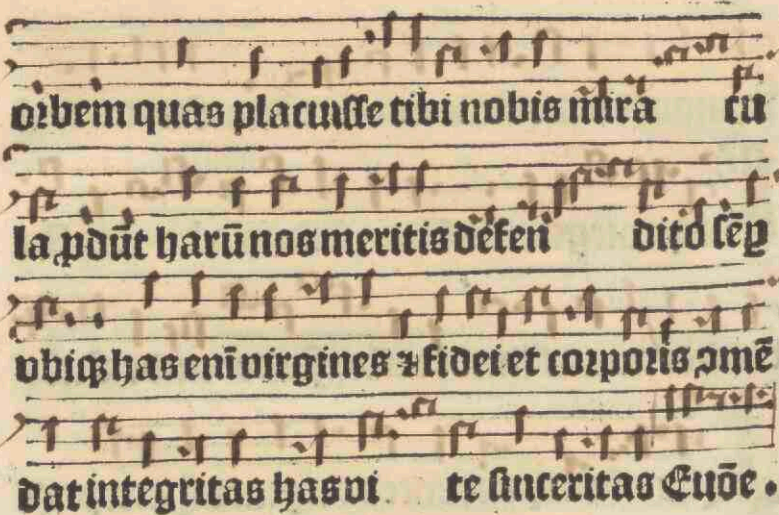 orbem quas placuisse tibi nobis mira cu
la ꝓdūt harū nos meritis defen dito sēꝑ
vbiqꝫ has enī virgines ⁊ fidei et corporis ꝯmē
dat integritas has vi te sinceritas Euōe .